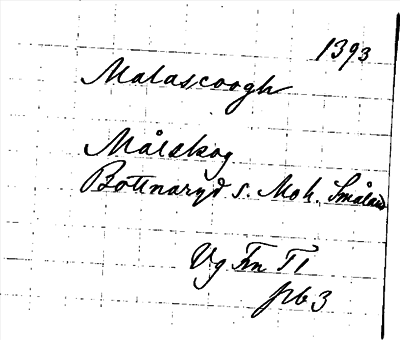 1393
Malascoogh
Målskog
Bottnaryd s. Moh. Småland
Vg Fn TI
p63